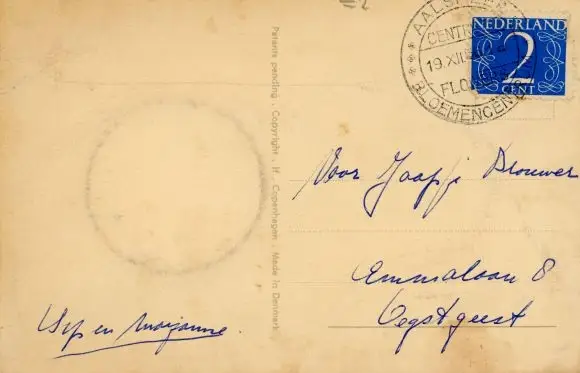 NEDERLAND
2
CENT
AALSMEER
CENTR
19.XII
FLO
BLOEMENCENT
Patents pending . Copyright . If . Copenhagen . Made in Denmark
Voor Jaapje Brouwer
Emmalaan 8
Oegstgeest
en Marjanne.